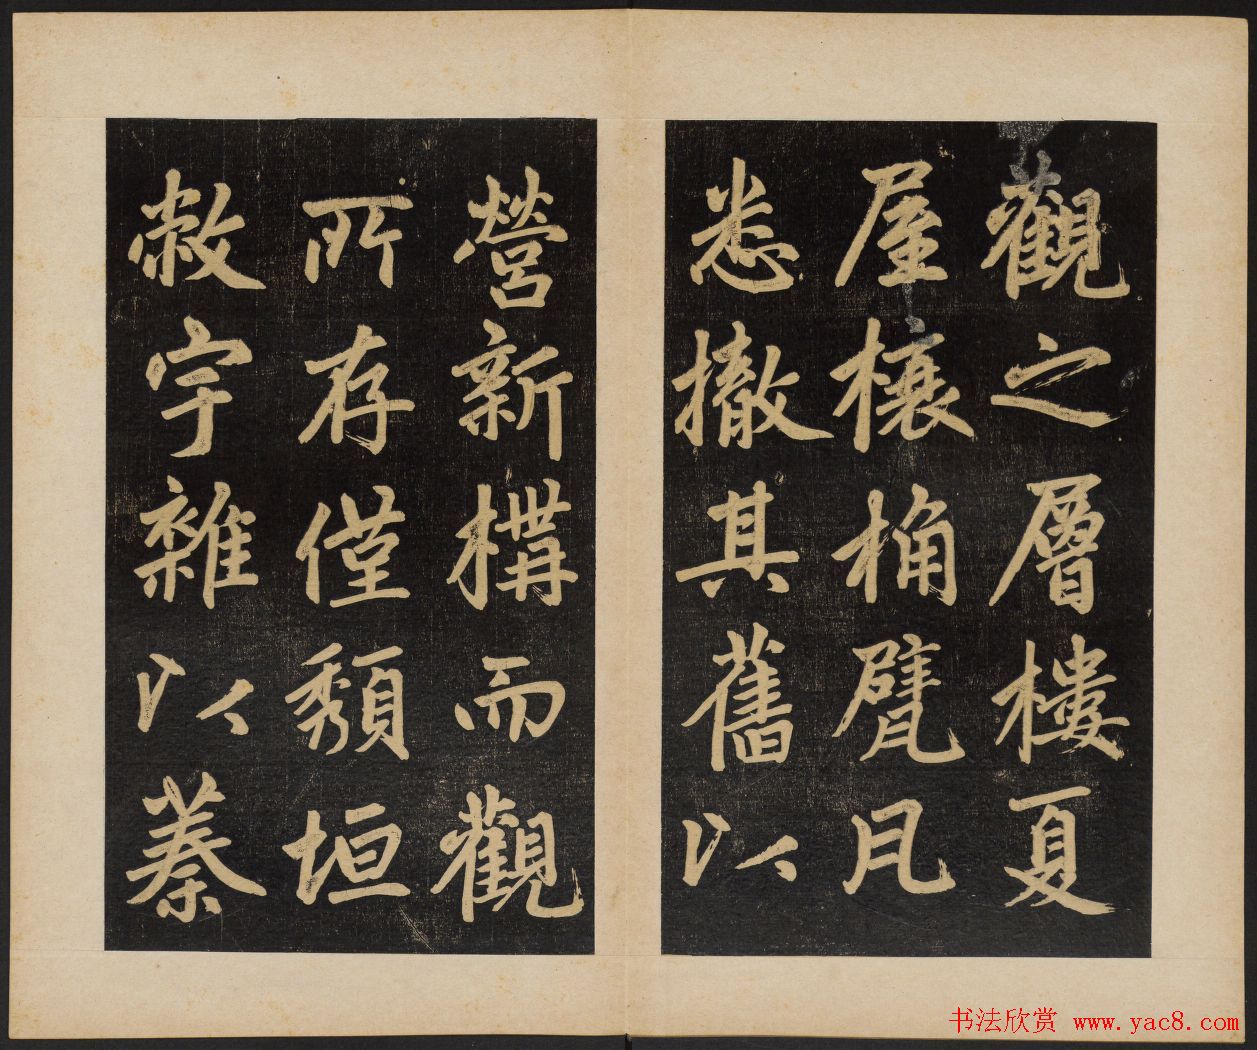 觀之層樓夏
屋榱桷甓凡
悉撤其舊以
營新構而觀
所存僅頹垣
敝宇雜以蓁
书法欣赏 www.yac8.com